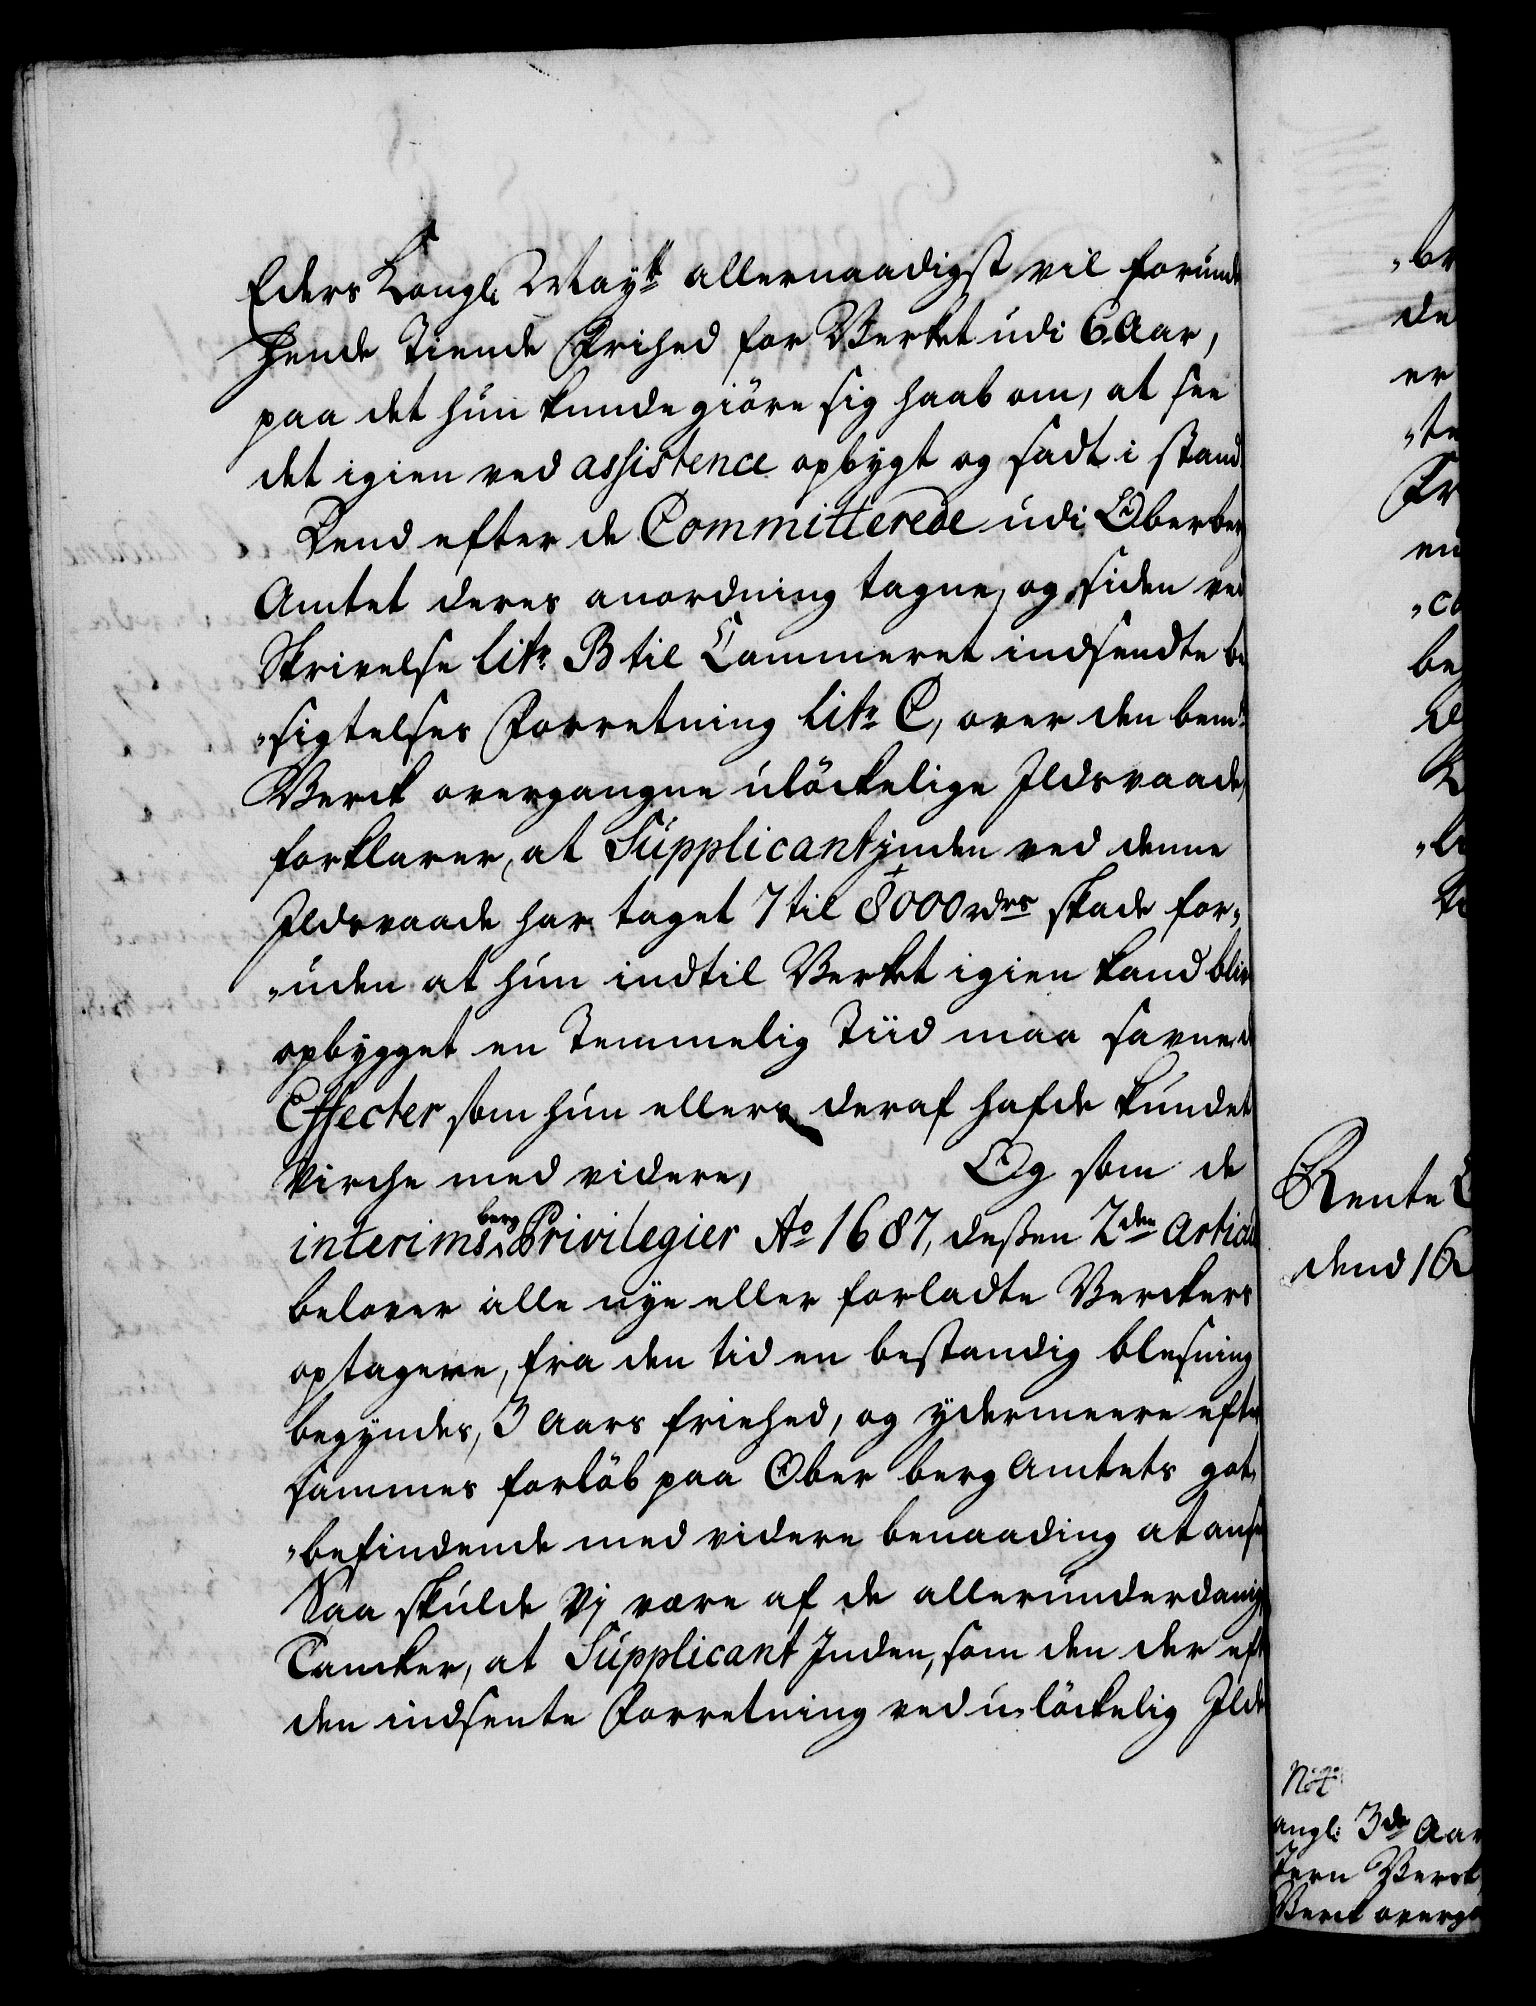 Eders Kongl: Mayt allernaadigst vil forunde
hende Tiende Frihed for Verket udi 6 Aar,
paa det hun kunde giöre sig haab om, at see
det igien ved assistence opbygt og sadt i stand.
Dend efter de Committerede udi Oberberg
Amtet deres anordning tagne, og siden ved
Skrivelse litr B til Cammeret indsendte be
„sigtelses Forretning litr C, over den bemte
Verck overgangne ulöckelige Ildsvaade,
forklarer, at Supplicantjnden ved denne
Ildsvaade har taget 7 til 8000 rdrs skade for„
„uden at hun indtil Verket igien kand blive
opbygget en Temmelig Tiid maa savne de
Effecter som hun ellers deraf hafde kundet
Virche med videre, Og som de
interims berg Privilegier Ao 1687, deßen 2den Articul
belover alle nye eller forladte Verckers
optagere, fra den tid en bestandig blesning
begyndes, 3 Aars friehed, og ydermeere efter
sammes forlöb paa Ober berg Amtets got„
„befindende med videre benaading at ansee
Saa skulde Vj være af de allerunderdanigste
Tancker, at Supplicant Inden, som den der efter
den indsente Forretning ved u„löckelig Ilds
„br
de
er
„te
Fr
en
„co
be
Rente
dend 16
angl: 3de Aar
Jern Verck
Verck overga